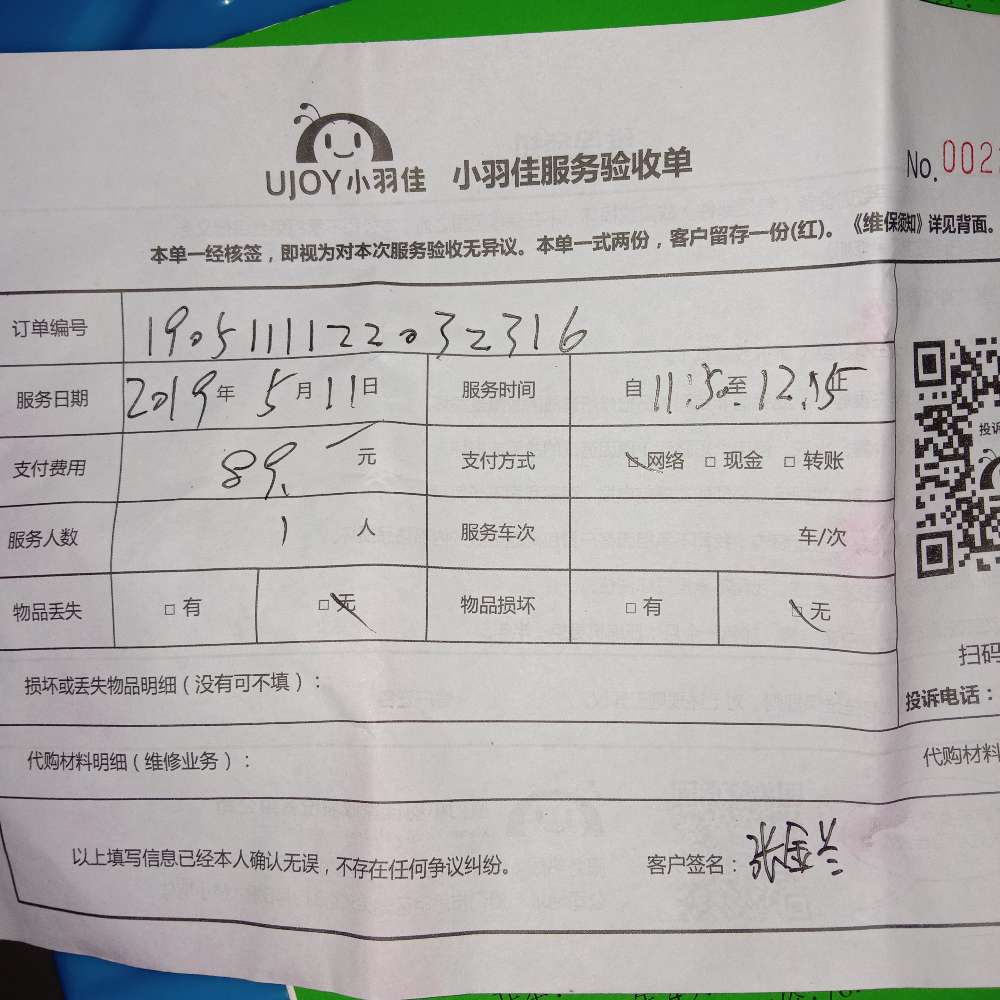 UJOY小羽佳 小羽佳服务验收单
No. 002
本单一经核签，即视为对本次服务验收无异议。本单一式两份，客户留存一份(红)。《维保须知》详见背面。
订单编号 1905111122032316
服务日期 2019年 5月11日 服务时间 自 11:50至 12:15止
支付费用 89. 元 支付方式 □网络 □现金 □转账
服务人数 1 人 服务车次 车/次
投诉
物品丢失 □有 □无 物品损坏 □有 □无
扫码
损坏或丢失物品明细（没有可不填）：
投诉电话：
代购材料明细（维修业务）：
代购材料
以上填写信息已经本人确认无误，不存在任何争议纠纷。 客户签名：